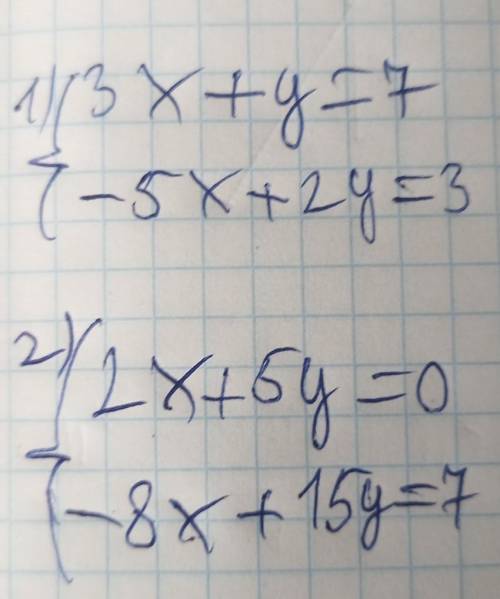 1) { 3x + y = 7
-5x + 2y = 3
2) { 2x + 5y = 0
-8x + 15y = 7